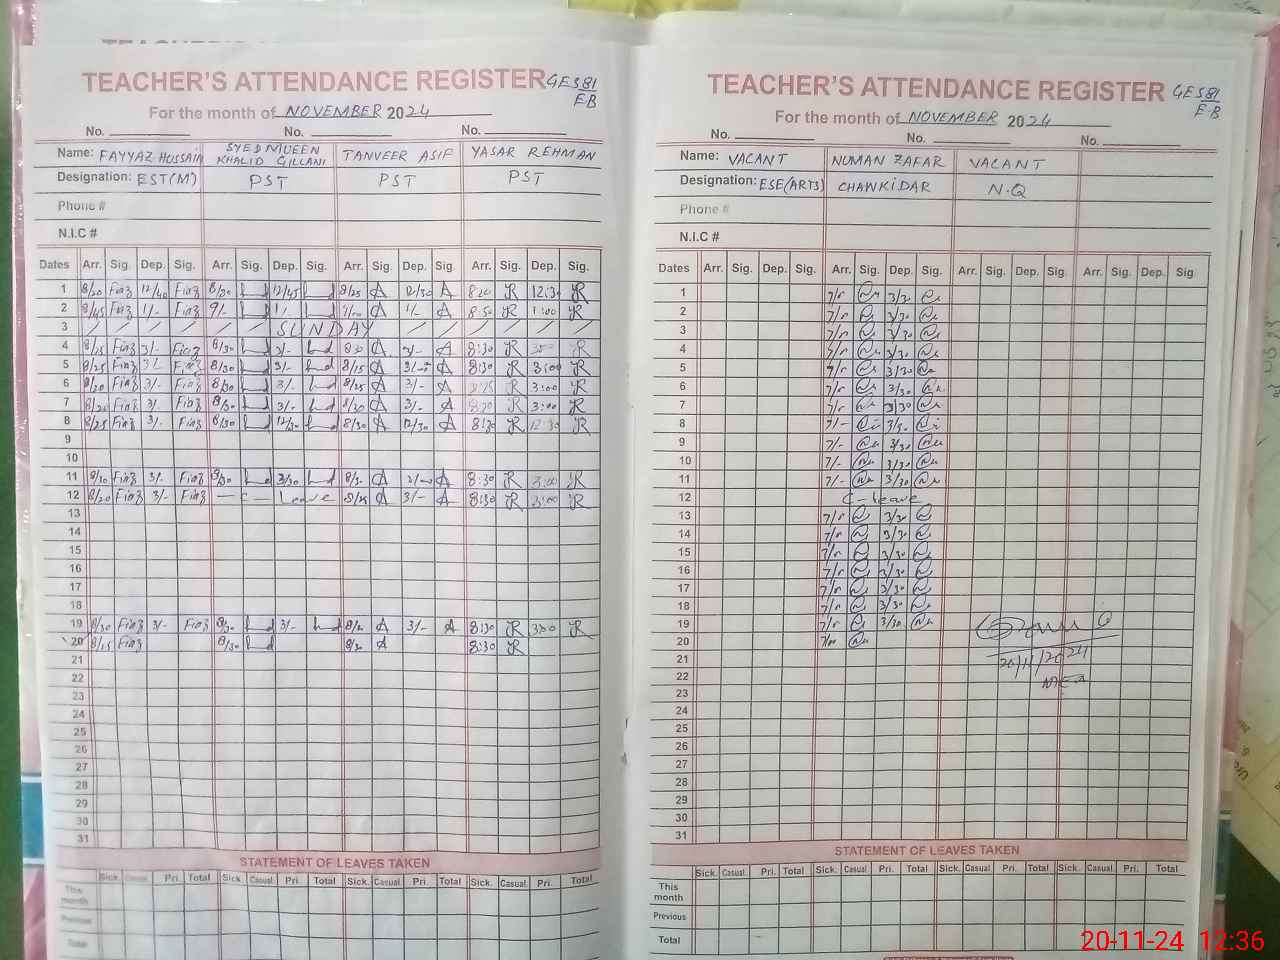 TEACHER'S ATTENDANCE REGISTER GES 81/EB
For the month of NOVEMBER 2024
No. No. No.
Name: FAYYAZ HUSSAIN SYED MUEEN KHALID GILLANI TANVEER ASIF YASAR REHMAN
Designation: EST(M) PST PST PST
Phone #
N.I.C #
Dates Arr. Sig. Dep. Sig. Arr. Sig. Dep. Sig. Arr. Sig. Dep. Sig. Arr. Sig. Dep. Sig.
1 8/20 12/40 8/30 12/45 8/25 12/30 8:20 12:30
2 8/45 1/- 9/- 1/- 1/- 8:50 1:00
3 SUNDAY
4 8/15 3/- 8/30 3/- 830 3/- 8:30
5 8/25 8/30 3/- 8/15 8:30 3:00
6 8/20 3/- 8/30 3/- 8/25 3/- 3:00
7 8/20 3/- 8/30 3/- 8/30 3/- 8:30 3:00
8 8/25 3/- 8/30 12/30 8/30 12/30 8:30 12:30
9
10
11 8/30 3/- 8/30 3/30 8:30 3:00
12 8/20 3/- C - Leave 8/25 3/- 8:30 3:00
13
14
15
16
17
18
19 8/30 3/- 8/30 3/- 3/- 8:30 300
20 8/15 8/30 8/30 8:30
21
22
23
24
25
26
27
28
29
30
31
STATEMENT OF LEAVES TAKEN
Sick. Casual. Pri. Total Sick. Casual. Pri. Total Sick. Casual. Pri. Total Sick. Casual. Pri. Total
This month
Previous
Total
TEACHER'S ATTENDANCE REGISTER GES 81/EB
For the month of NOVEMBER 2024
No. No. No.
Name: VACANT NUMAN ZAFAR VACANT
Designation: ESE(ARTS) CHAWKIDAR N.Q
Phone #
N.I.C #
Dates Arr. Sig. Dep. Sig. Arr. Sig. Dep. Sig. Arr. Sig. Dep. Sig. Arr. Sig. Dep. Sig
1 3/30
2 3/30
3 3/30
4 3/30
5 3/30
6 3/30
7 3/30
8 7/- 3/30
9 7/- 3/30
10 7/- 3/30
11 7/- 3/30
12 C-leave
13 3/30
14 3/30
15 3/30
16 3/30
17 3/30
18 3/30
19 3/30
20 7/00
21 20/11/2024
22 MEA
23
24
25
26
27
28
29
30
31
STATEMENT OF LEAVES TAKEN
Sick. Casual. Pri. Total Sick. Casual. Pri. Total Sick. Casual. Pri. Total Sick. Casual. Pri. Total
This month
Previous
Total
20-11-24 12:36